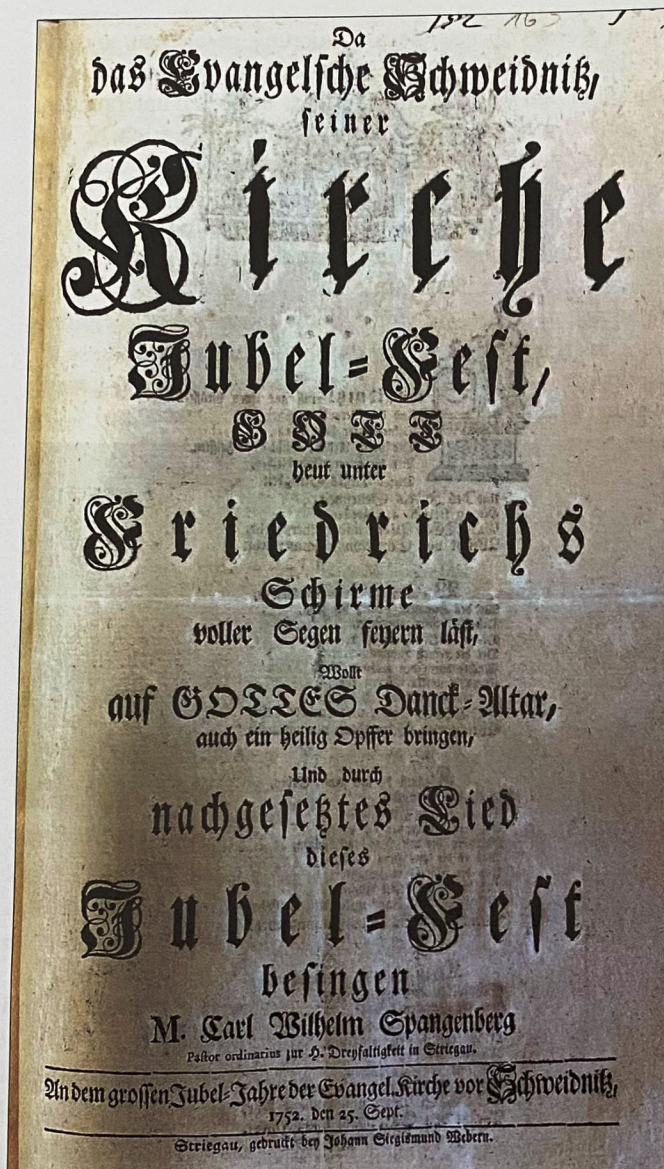 Da
das Evangelsche Schweidnitz,
seiner
Kirche
Jubel-Fest,
GOTT
heut unter
Friedrichs
Schirme
voller Segen feyern läst,
Wollt
auf GOTTES Danck-Altar,
auch ein heilig Opffer bringen,
Und durch
nachgesetztes Lied
dieses
Jubel-Fest
besingen
M. Carl Wilhelm Spangenberg
Pastor ordinarius zur H. Dreyfaltigkeit in Striegau.
An dem grossen Jubel-Jahre der Evangel. Kirche vor Schweidnitz,
1752. den 25. Sept.
Striegau, gedruckt bey Johann Siegismund Webern.